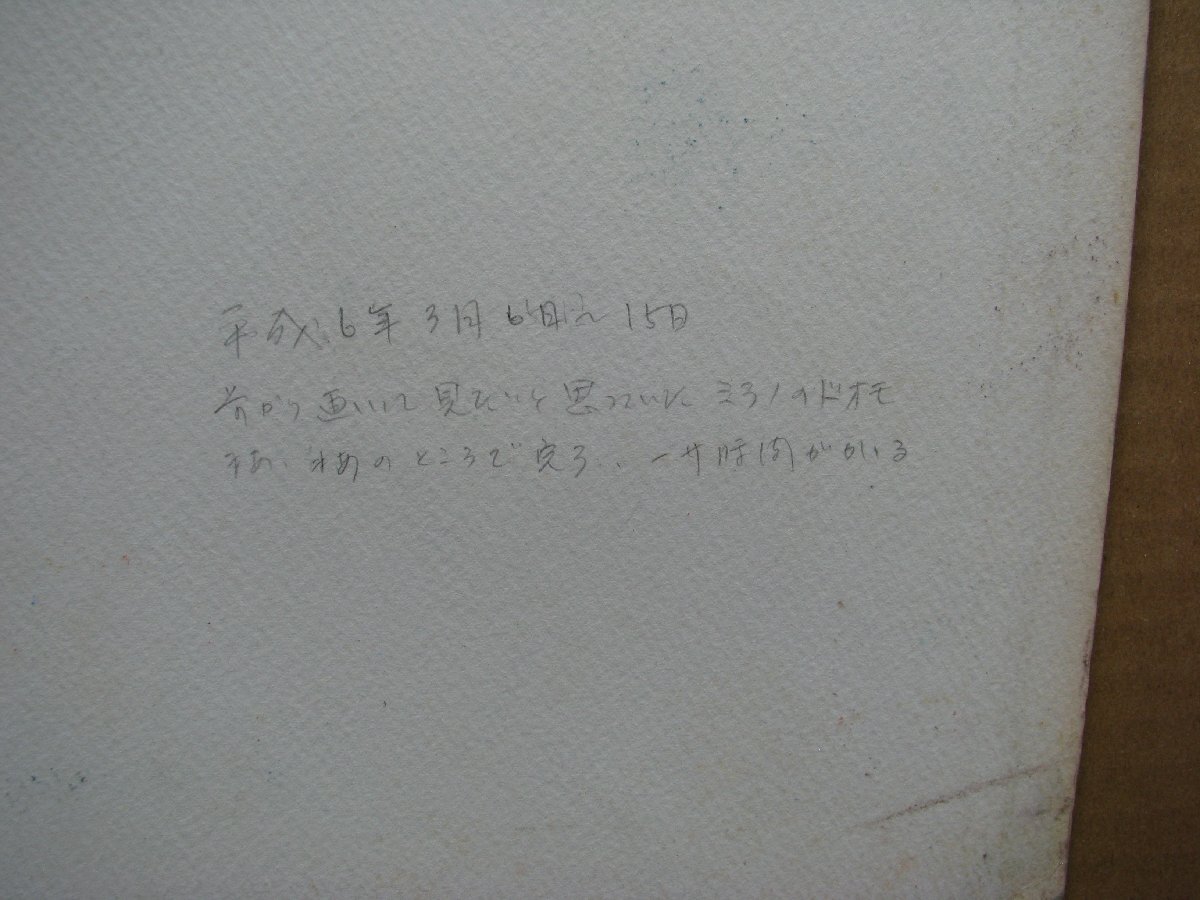 平成6年3月6日〜15日
前から画いて見たいと思っていたミラノのドオモ
まあ、まあのところで完了、一寸時間がかいる